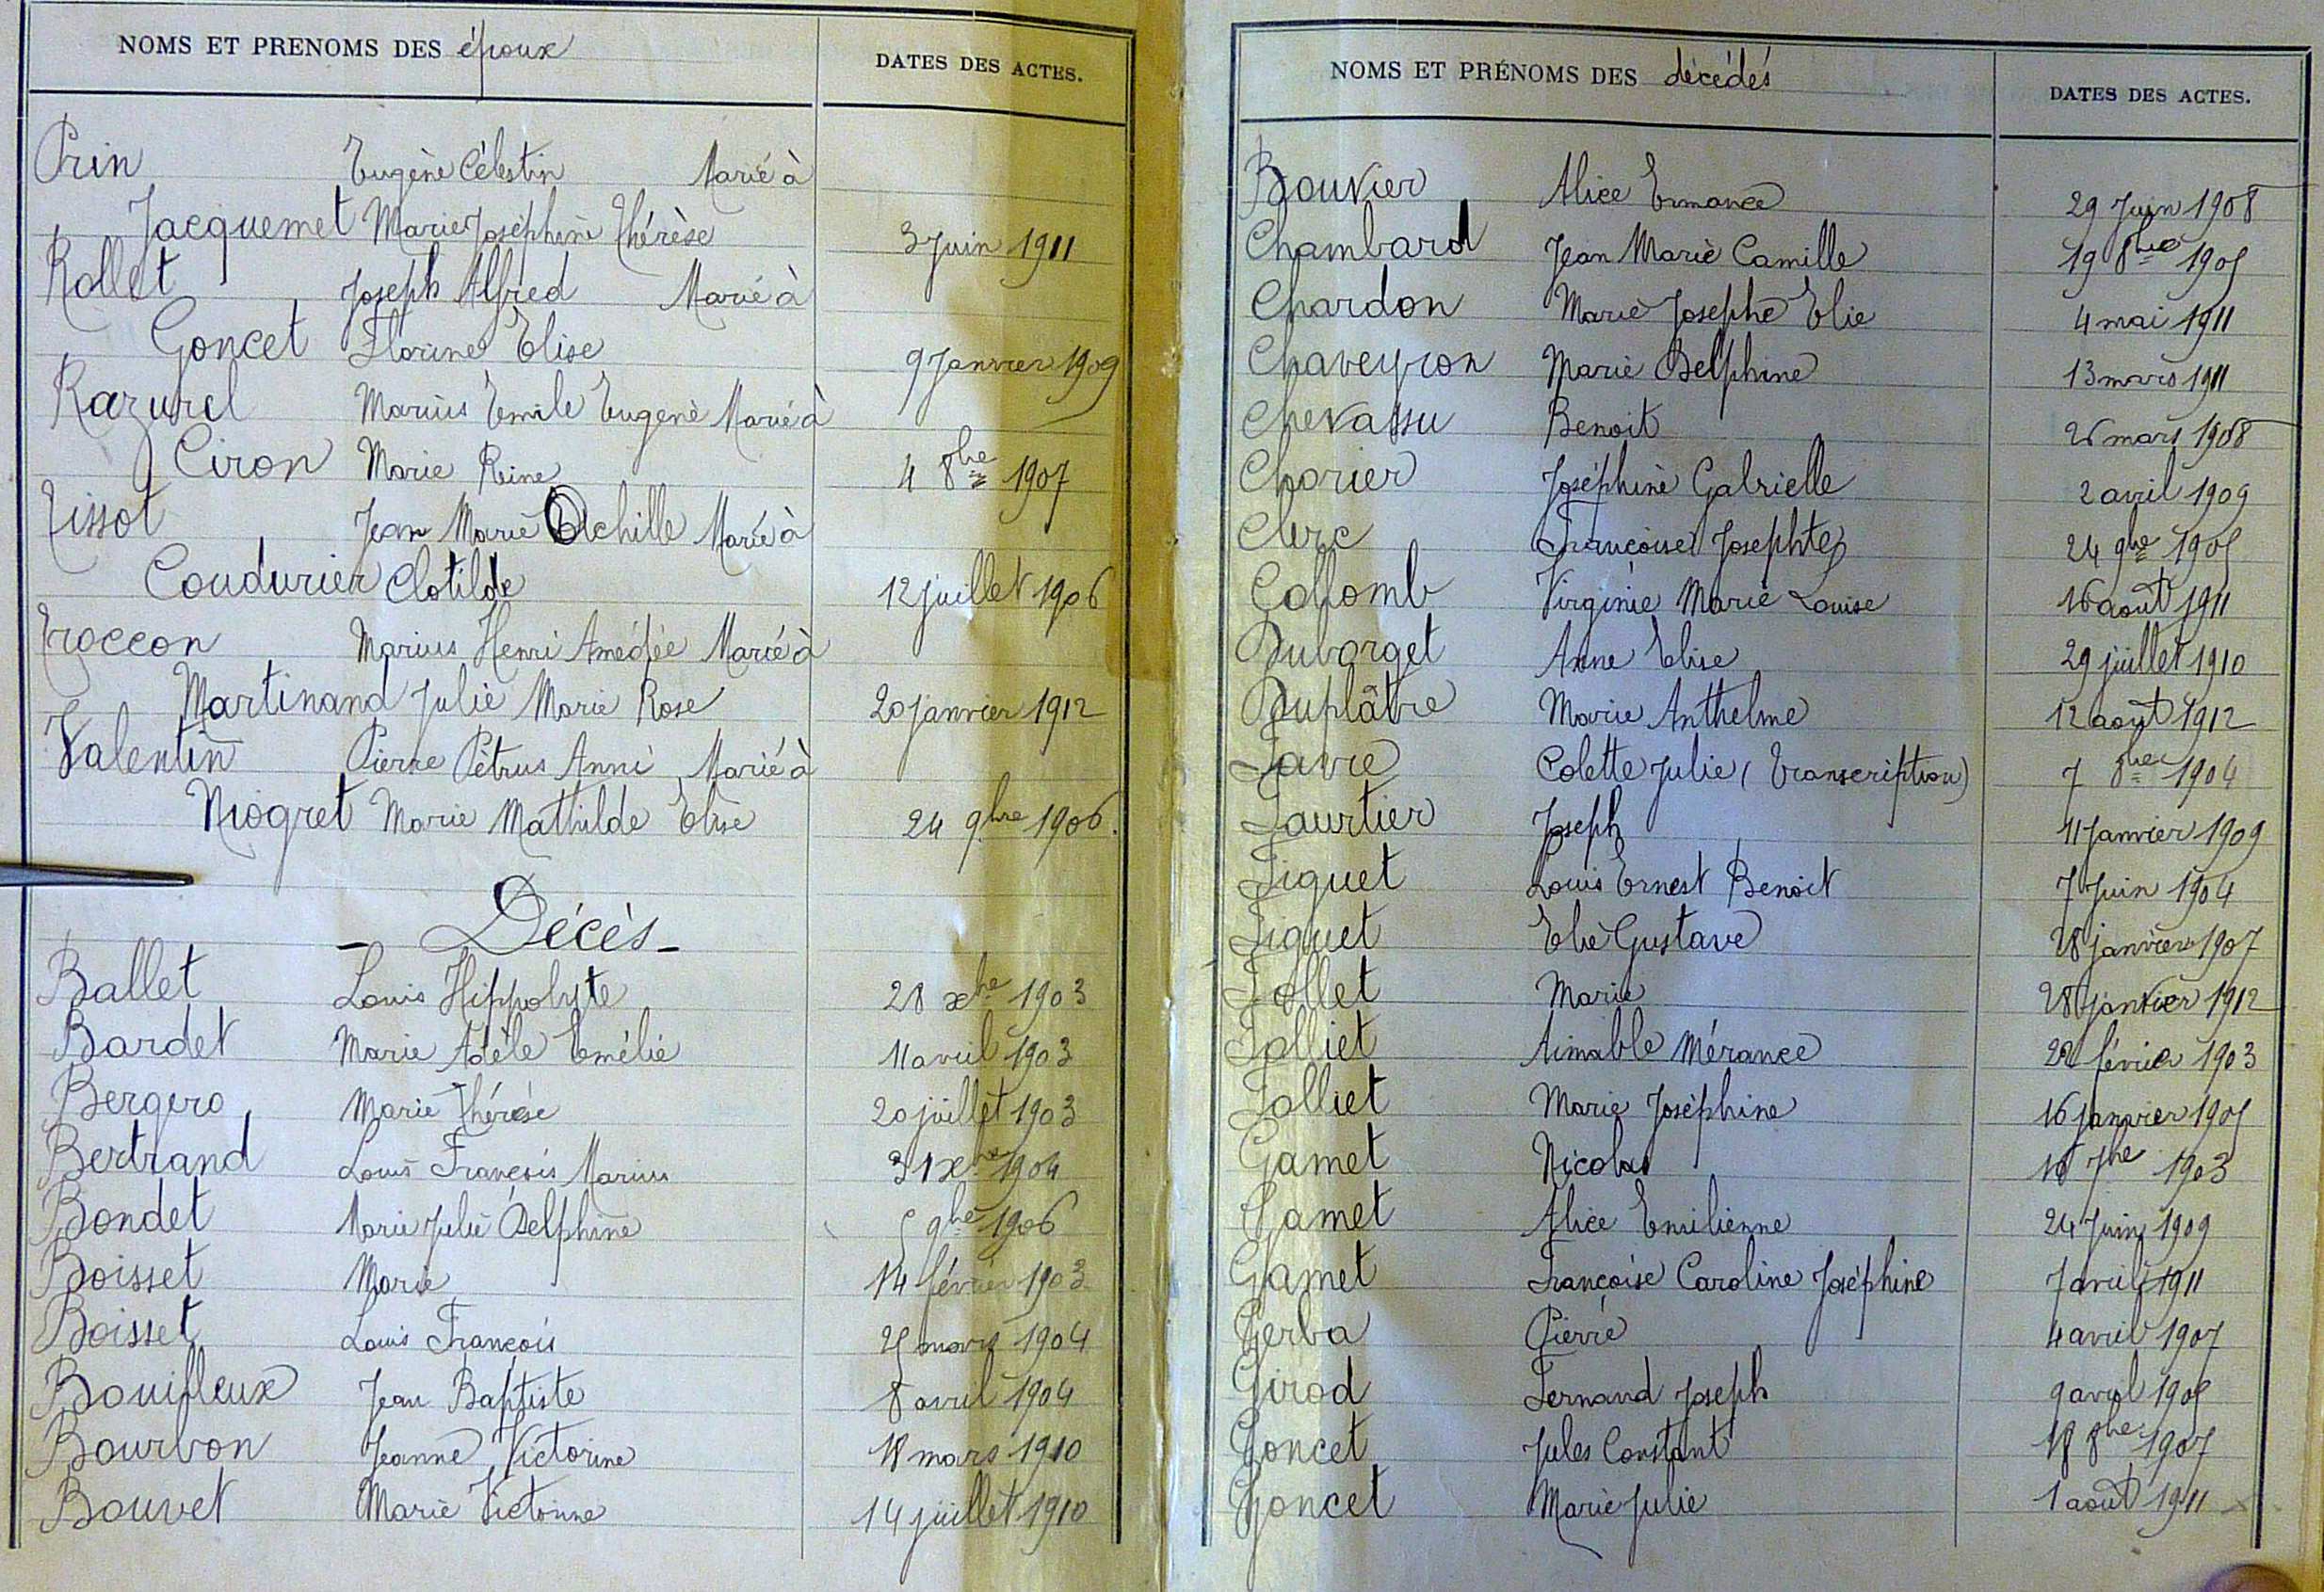 NOMS ET PRENOMS DES époux DATES DES ACTES.
Prin Eugène Célestin Marié à
Jacquemet Marie Joséphine Thérèse 3 Juin 1911
Rollet Joseph Alfred Marié à
Goncet Florine Elise 9 Janvier 1909
Razurel Marius Emile Eugenè Marié à
Ciron Marie Reine 4 8bre 1907
Tissot Jean Marie Achille Marié à
Coudurier Clotilde 12 juillet 1906
Troccon Marius Henri Amédée Marié à
Martinand Julie Marie Rose 20 janvier 1912
Valentin Pierre Pétrus Anni Marié à
Niogret Marie Mathilde Elise 24 9bre 1906.
- Décès -
Ballet Louis Hippolyte 28 xbre 1903
Bardet Marie Adèle Emélie 11 avril 1903
Bergero Marie Thérèse 20 juillet 1903
Bertrand Louis François Marius 31 xbre 1904
Bondet Marie Julie Delphine 5 9bre 1906
Boisset Marie 14 février 1903
Boisset Louis François 25 mars 1904
Bouifleux Jean Baptiste 8 avril 1904
Bourbon Jeanne Victorine 18 mars 1910
Bouvet Marie Victorine 14 juillet 1910
NOMS ET PRÉNOMS DES décédés DATES DES ACTES.
Bouvier Alice Ermance 29 Juin 1908
Chambard Jean Marie Camille 19 8bre 1905
Chardon Marie Josephe Elie 4 mai 1911
Chaveyron Marie Delphine 13 mars 1911
Chevassu Benoit 26 mars 1908
Chorier Joséphine Gabrielle 2 avril 1909
Clerc Françoise Josephte 24 9bre 1905
Collomb Virginie Marie Louise 16 août 1911
Duborget Anne Elise 29 juillet 1910
Duplâtre Marie Anthelme 12 août 1912
Favre Colette Julie (Transcription) 7 8bre 1904
Faurtier Joseph 11 Janvier 1909
Fiquet Louis Ernest Benoit 7 Juin 1904
Fiquet Elie Gustave 28 janvier 1907
Follet Marie 28 janvier 1912
Folliet Aimable Mérance février 1903
Folliet Marie Joséphine 16 janvier 1905
Gamet Nicolas 7bre 1903
Gamet Alice Emilienne 24 Juin 1909
Gamet Françoise Caroline Joséphine 7 avril 1911
Gerba Pierre 4 avril 1907
Girod Fernand Joseph 9 avril 1905
Goncet Jules Constant 18 8bre 1907
Goncet Marie Julie 1 août 1911